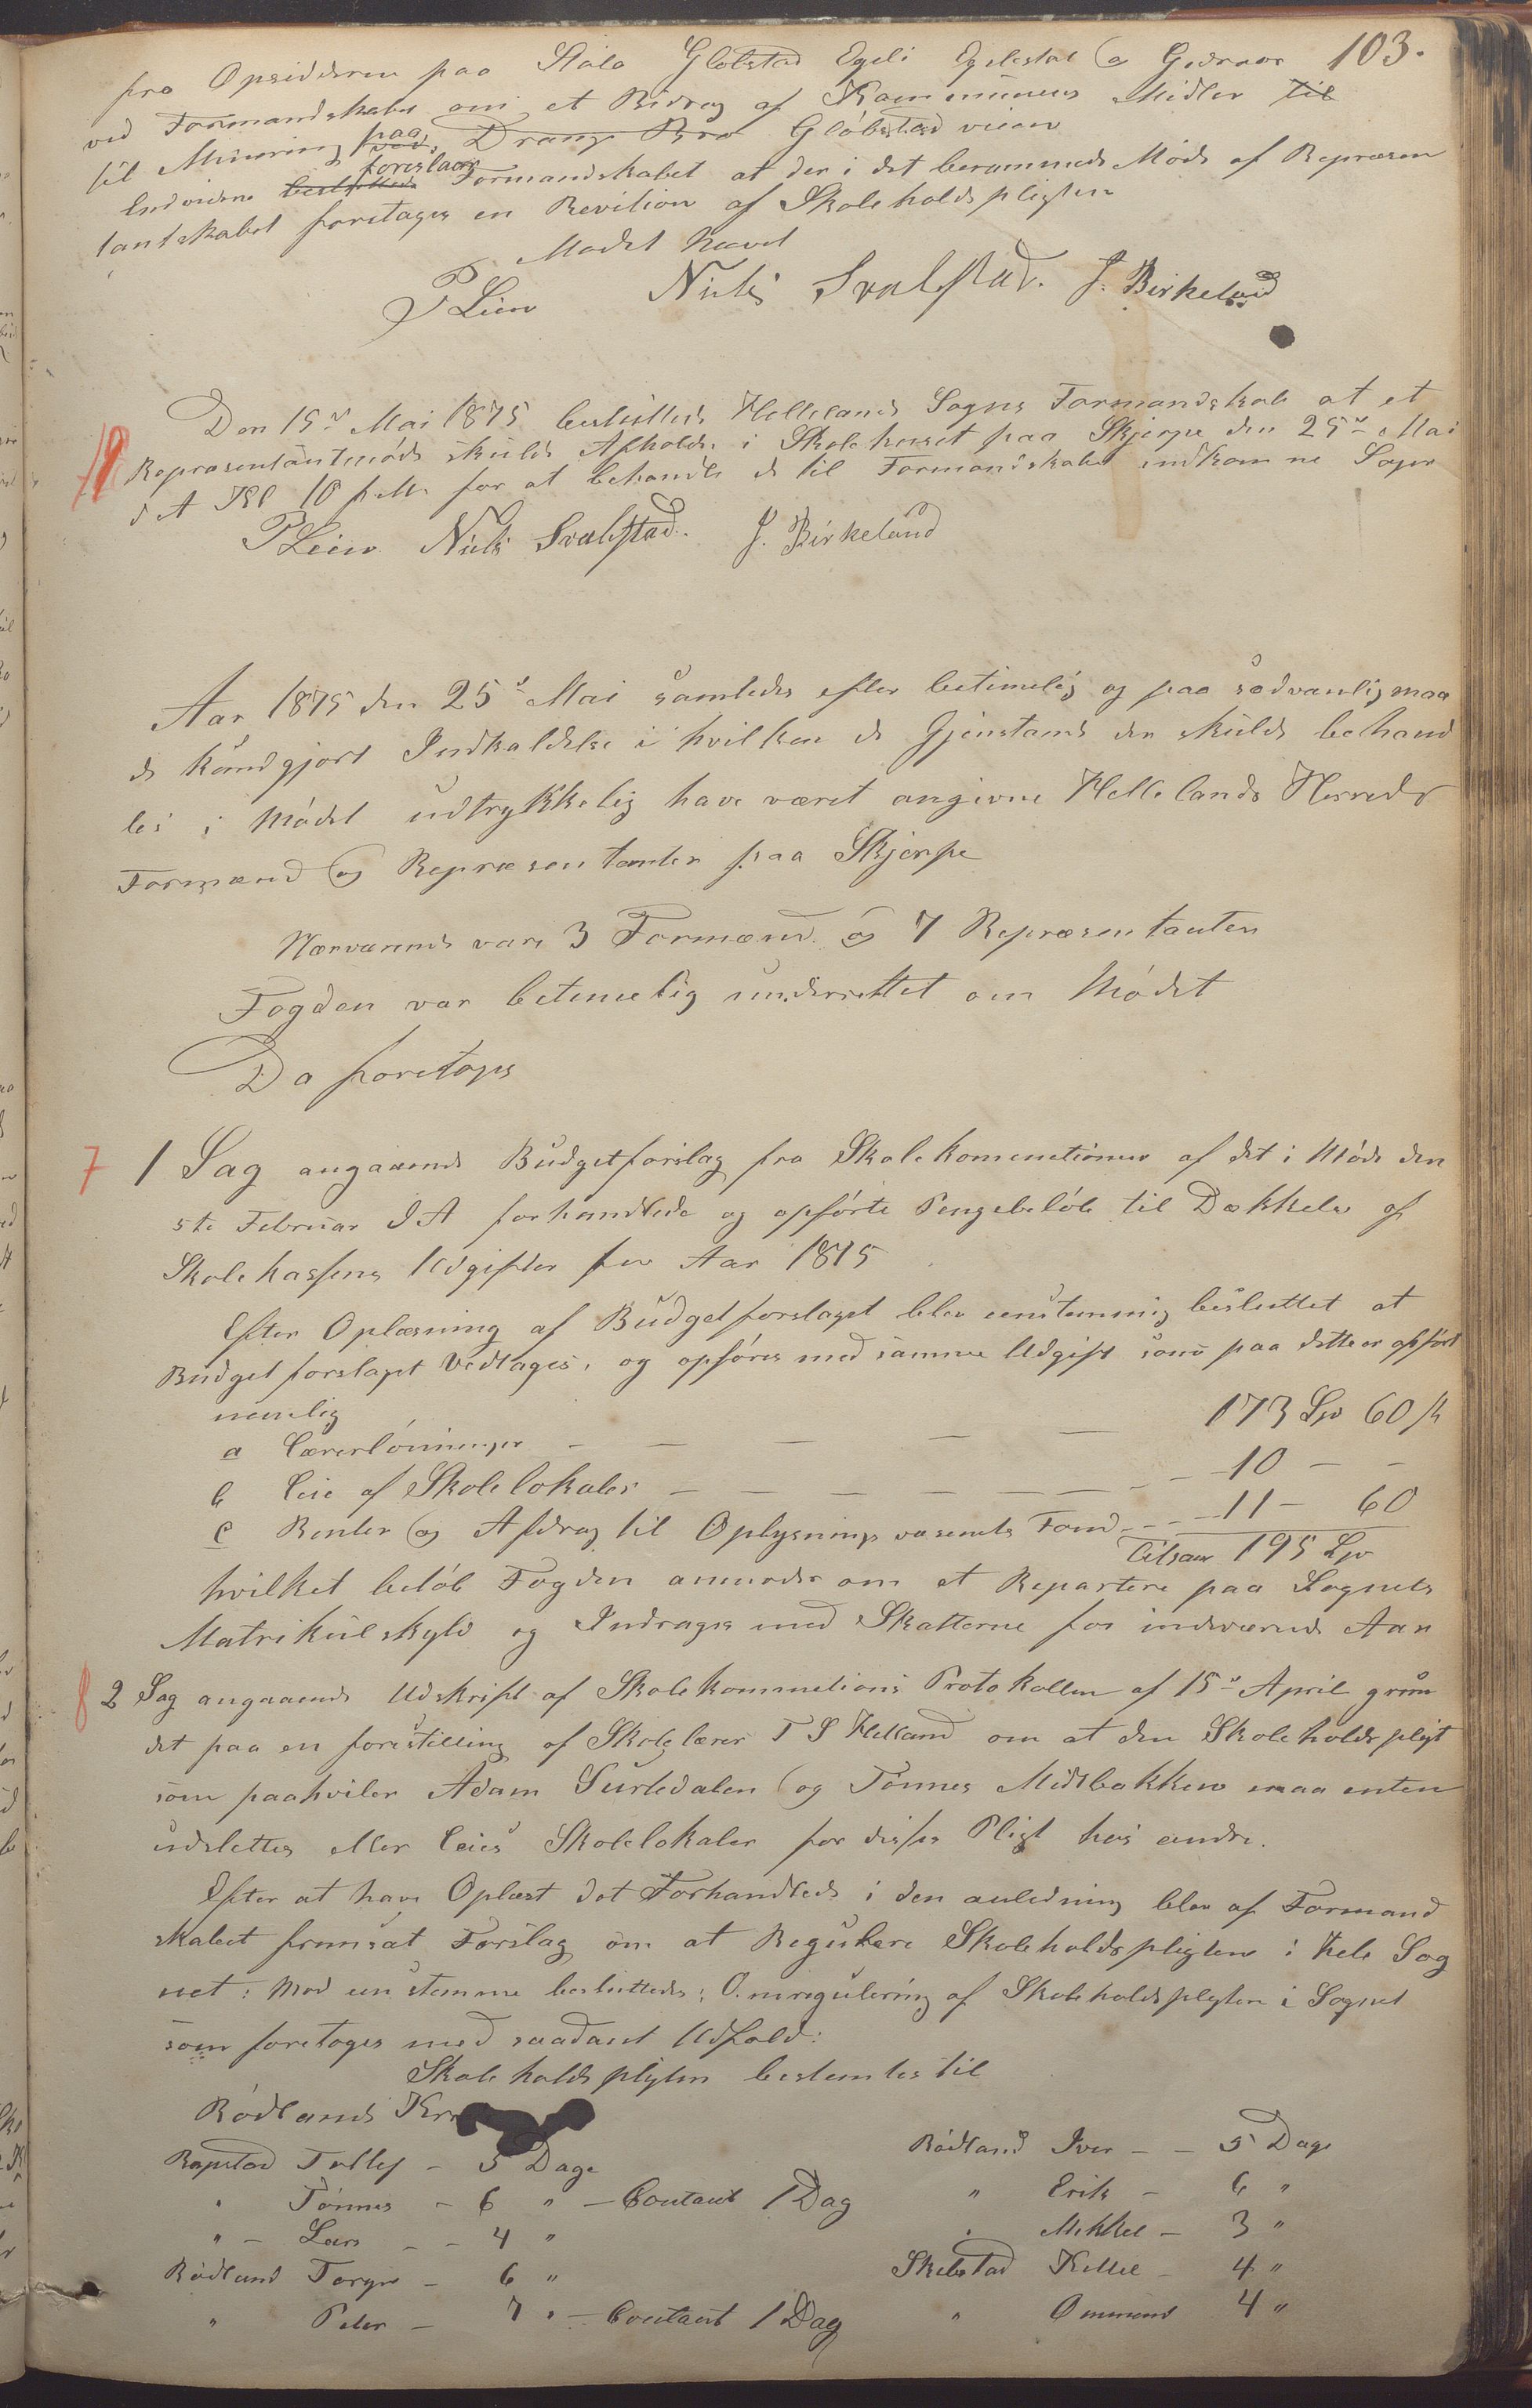 103.
fra Opsidderne paa Stala Gløbstad Egeli Egelestal og Gedraas
ved Formandskabet om et Bidrag af Kommunens Midler til
til Minering paa ved Drange Bro Gløbstad veien
Endvidere besluttede foreslaar Formandskabet at der i det berammede Møde af Repræsen
tantskabet foretages en Revition af Skoleholdspligten
Mødet hævet
P Lien Niels Svalestad. J. Birkeland
19 Den 15de Mai 1875 besluttede Hellelands Sogns Formandskab at et
Repræsentantmøde skulde Afholdes i Skolehuset paa Skjerpe den 25de Mai
d A Kl 10 f.M. for at behandle de til Formandskabet indkomne Sager
P Lien Niels Svalestad. J. Birkeland
Aar 1875 den 25de Mai samledes efter betimelig og paa sædvanlig maa
de kundgjort Indkaldelse i hvilken de Gjenstande der skulde behand
les i Mødet udtrykkelig have været angivne Hellelands Herreds
Formænd og Repræsentanter paa Skjerpe
Nærværende vare 3 Formænd og 7 Repræsentanter
Fogden var betimelig underrettet om Mødet
Da foretoges
7 1 Sag angaaende Budgetforslag fra Skolekommitionen af det i Møde den
5te Februar d A forhandlede og opførte Pengebeløb til Dækkelse af
Skolekassens Udgifter for Aar 1875
Efter Oplæsning af Budgetforslaget blev eenstemmig besluttet at
Budgetforslaget vedtages, og opføres med samme Udgift som paa dette er opført
nemlig
a Lærerlønninger — — — — — 173 Spd 60 ß
b Leie af Skolelokaler — — — — — — — 10 — -
c Renter og Afdrag til Oplysningsvæsenets Fond - - - 11 — 60
Tilsam 195 Spd
hvilket beløb Fogden anmodes om at Repartere paa Sognets
Matrikulskyld og Inddrages med Skatterne for indeværende Aar
8 2 Sag angaaende Udskrift af Skolekommitions Protokollen af 15de April grun
det paa en forestilling af Skolelærer T S Helland om at den Skoleholdspligt
som paahviler Adam Surledalen og Tønnes Midtbakken maa enten
udslettes eller leies Skolelokaler for disses Pligt hos andre.
Efter at have Oplæst det Forhandlede i den anledning blev af Formand
skabet fremsat Forslag om at Regulere Skoleholdspligten i hele Sog
net: Mod een stemme besluttedes: Omregulering af Skoleholdsplgten i Sognet
som foretoges med saadant Udfald:
Skoleholdsplgten bestemtes til
Rødlands Kr
Ropstad Tollef — 5 Dage
" Tønnes — 6 " — Contant 1 Dag
" — Lars — — 4 "
Rødland Torger — 6 "
" Peter — 7 " — Contant 1 Dag
Rødland Iver — — 5 Dage
" Erik — 6 "
" Mikkel — 3 "
Skebstad Kittel — 4 "
" Ommund 4 "